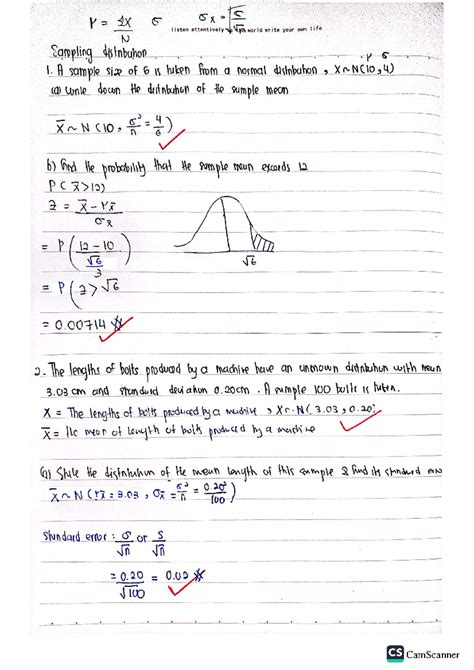 μ = ΣX/N σ σx̄ = √ s/√n
listen attentively world write your own life
Sampling distribution
μ σ
1. A sample size of 6 is taken from a normal distribution , X~N(10,4)
(a) Write down the distribution of the sample mean
X̄ ~ N (10, σ²/n = 4/6)
b) Find the probability that the sample mean exceeds 12
P( x̄ > 12)
Z = x̄ - μx̄ / σx̄
= P( 12 - 10 / √6/3 )
√6
= P( Z > √6
= 0.00714
2. The lengths of bolts produced by a machine have an unknown distribution with mean
3.03 cm and standard deviation 0.20cm . A sample 100 bolts is taken.
X = The lengths of bolts produced by a machine , X~N( 3.03, 0.20²
X̄ = The mean of length of bolts produced by a machine
(a) State the distribution of the mean length of this sample & find its standard
X̄ ~ N ( μx̄ = 3.03 , σx̄ = σ²/n = 0.20²/100 )
Standard error : σ/√n or s/√n
= 0.20/√100 = 0.02
CS CamScanner